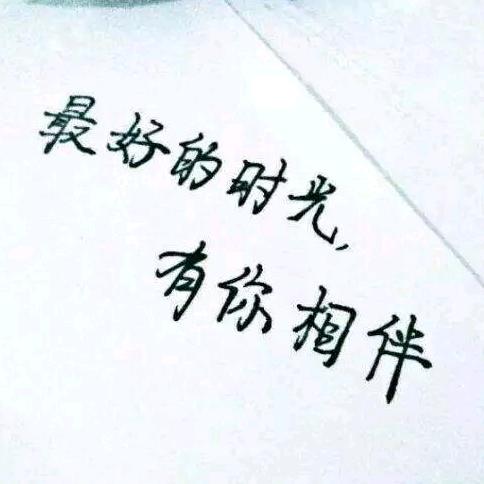 最好的时光，
有你相伴